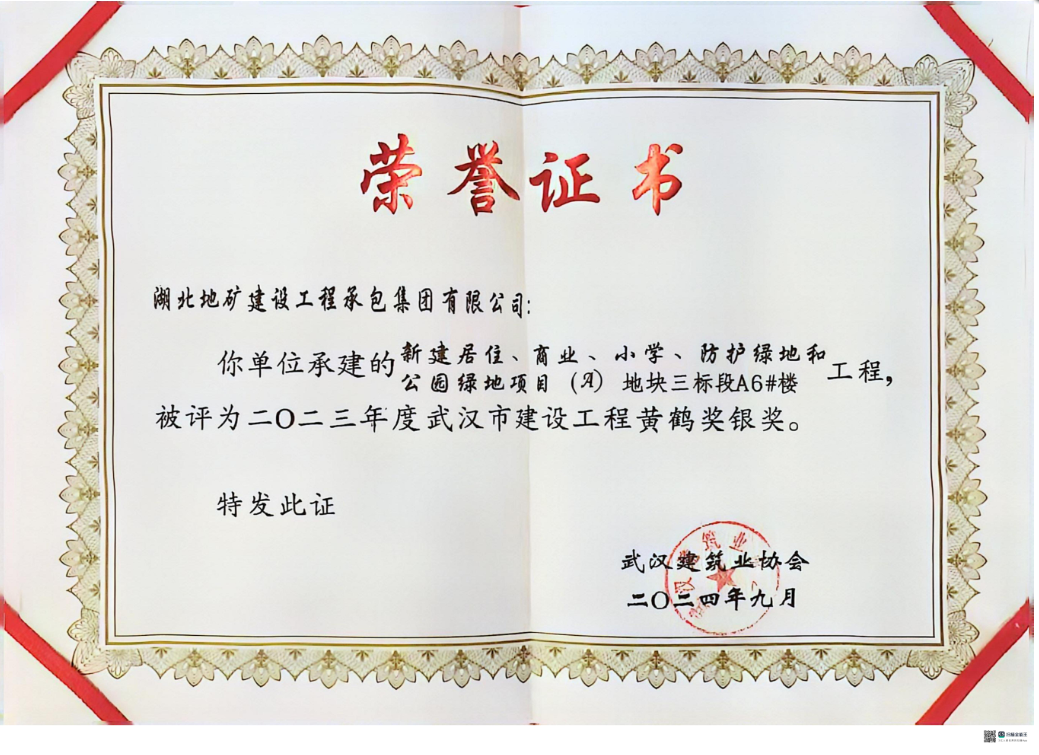 荣誉证书
湖北地矿建设工程承包集团有限公司:
你单位承建的新建居住、商业、小学、防护绿地和
公园绿地项目（A）地块三标段A6#楼工程,
被评为二〇二三年度武汉市建设工程黄鹤奖银奖。
特发此证
武汉建筑业协会
二〇二四年九月